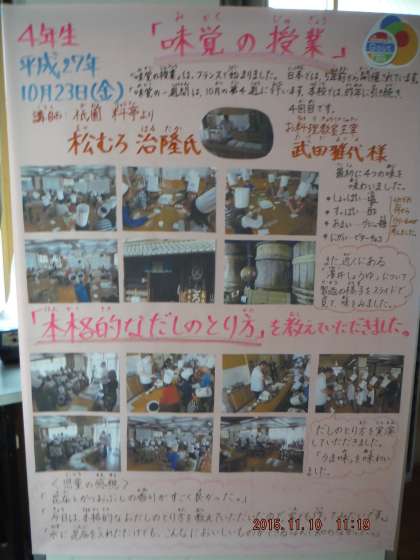 4年生
「味覚の授業」
平成27年
10月23日(金)
「味覚の授業」は、フランスで始まりました。日本では、
「味覚の一週間」は、10月の第4週に行います。本校では、昨年に引き続き
4回目です。
講師: 祇園 料亭より
松むろ 治隆氏
お料理教室主宰
武田 代様
最初に4つの味を
味わいました。
しょっぱい 塩
すっぱい 酢
あまい
にがい
また近くにある
「澤井しょうゆ」について
製造の様子をスライドで
見て、味をみました。
「本格的なだしのとり方」を教えていただきました。
だしのとり方を実演
していただきました。
「うま味」を味わい
ました。
<児童の感想>
「昆布とかつおぶしの香りがすごく良かった。」
「今日は、本格的なおだしのとり方を教えていただいたので
「水に昆布を入れただけでも、こんなにおいしい
2015.11.10 11:19